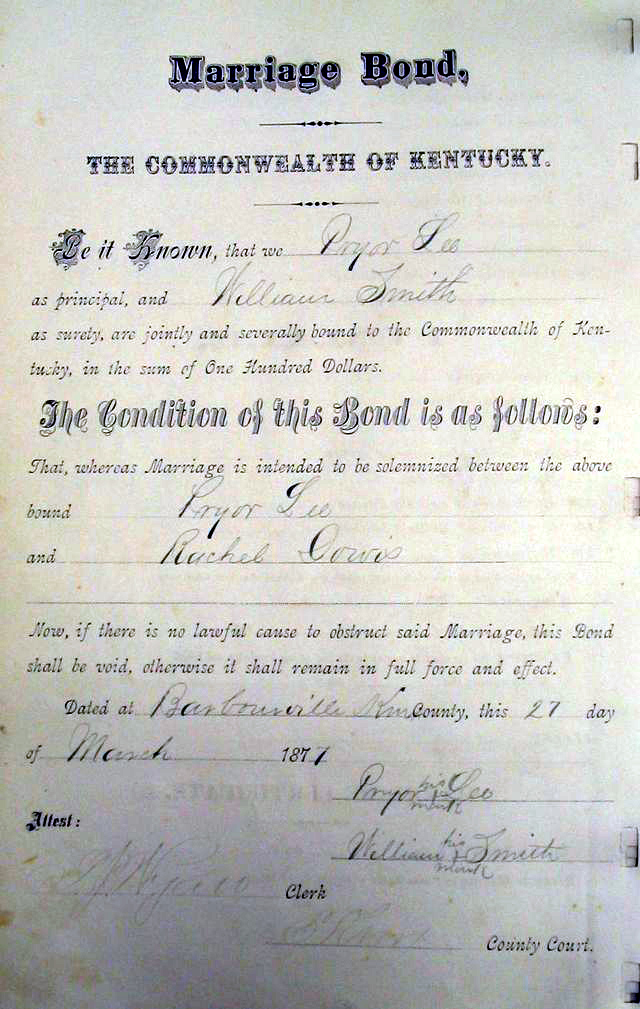 Marriage Bond,
THE COMMONWEALTH OF KENTUCKY.
Be it Known, that we Pryor Lee
as principal, and William Smith
as surety, are jointly and severally bound to the Commonwealth of Ken-
tucky, in the sum of One Hundred Dollars.
The Condition of this Bond is as follows:
That, whereas Marriage is intended to be solemnized between the above
bound Pryor Lee
and Rachel Dowis
Now, if there is no lawful cause to obstruct said Marriage, this Bond
shall be void, otherwise it shall remain in full force and effect.
Dated at Barbourville County, this 27 day
of March 1877
Pryor his + mark Lee
Attest:
William his + mark Smith
Clerk
Knox County Court.